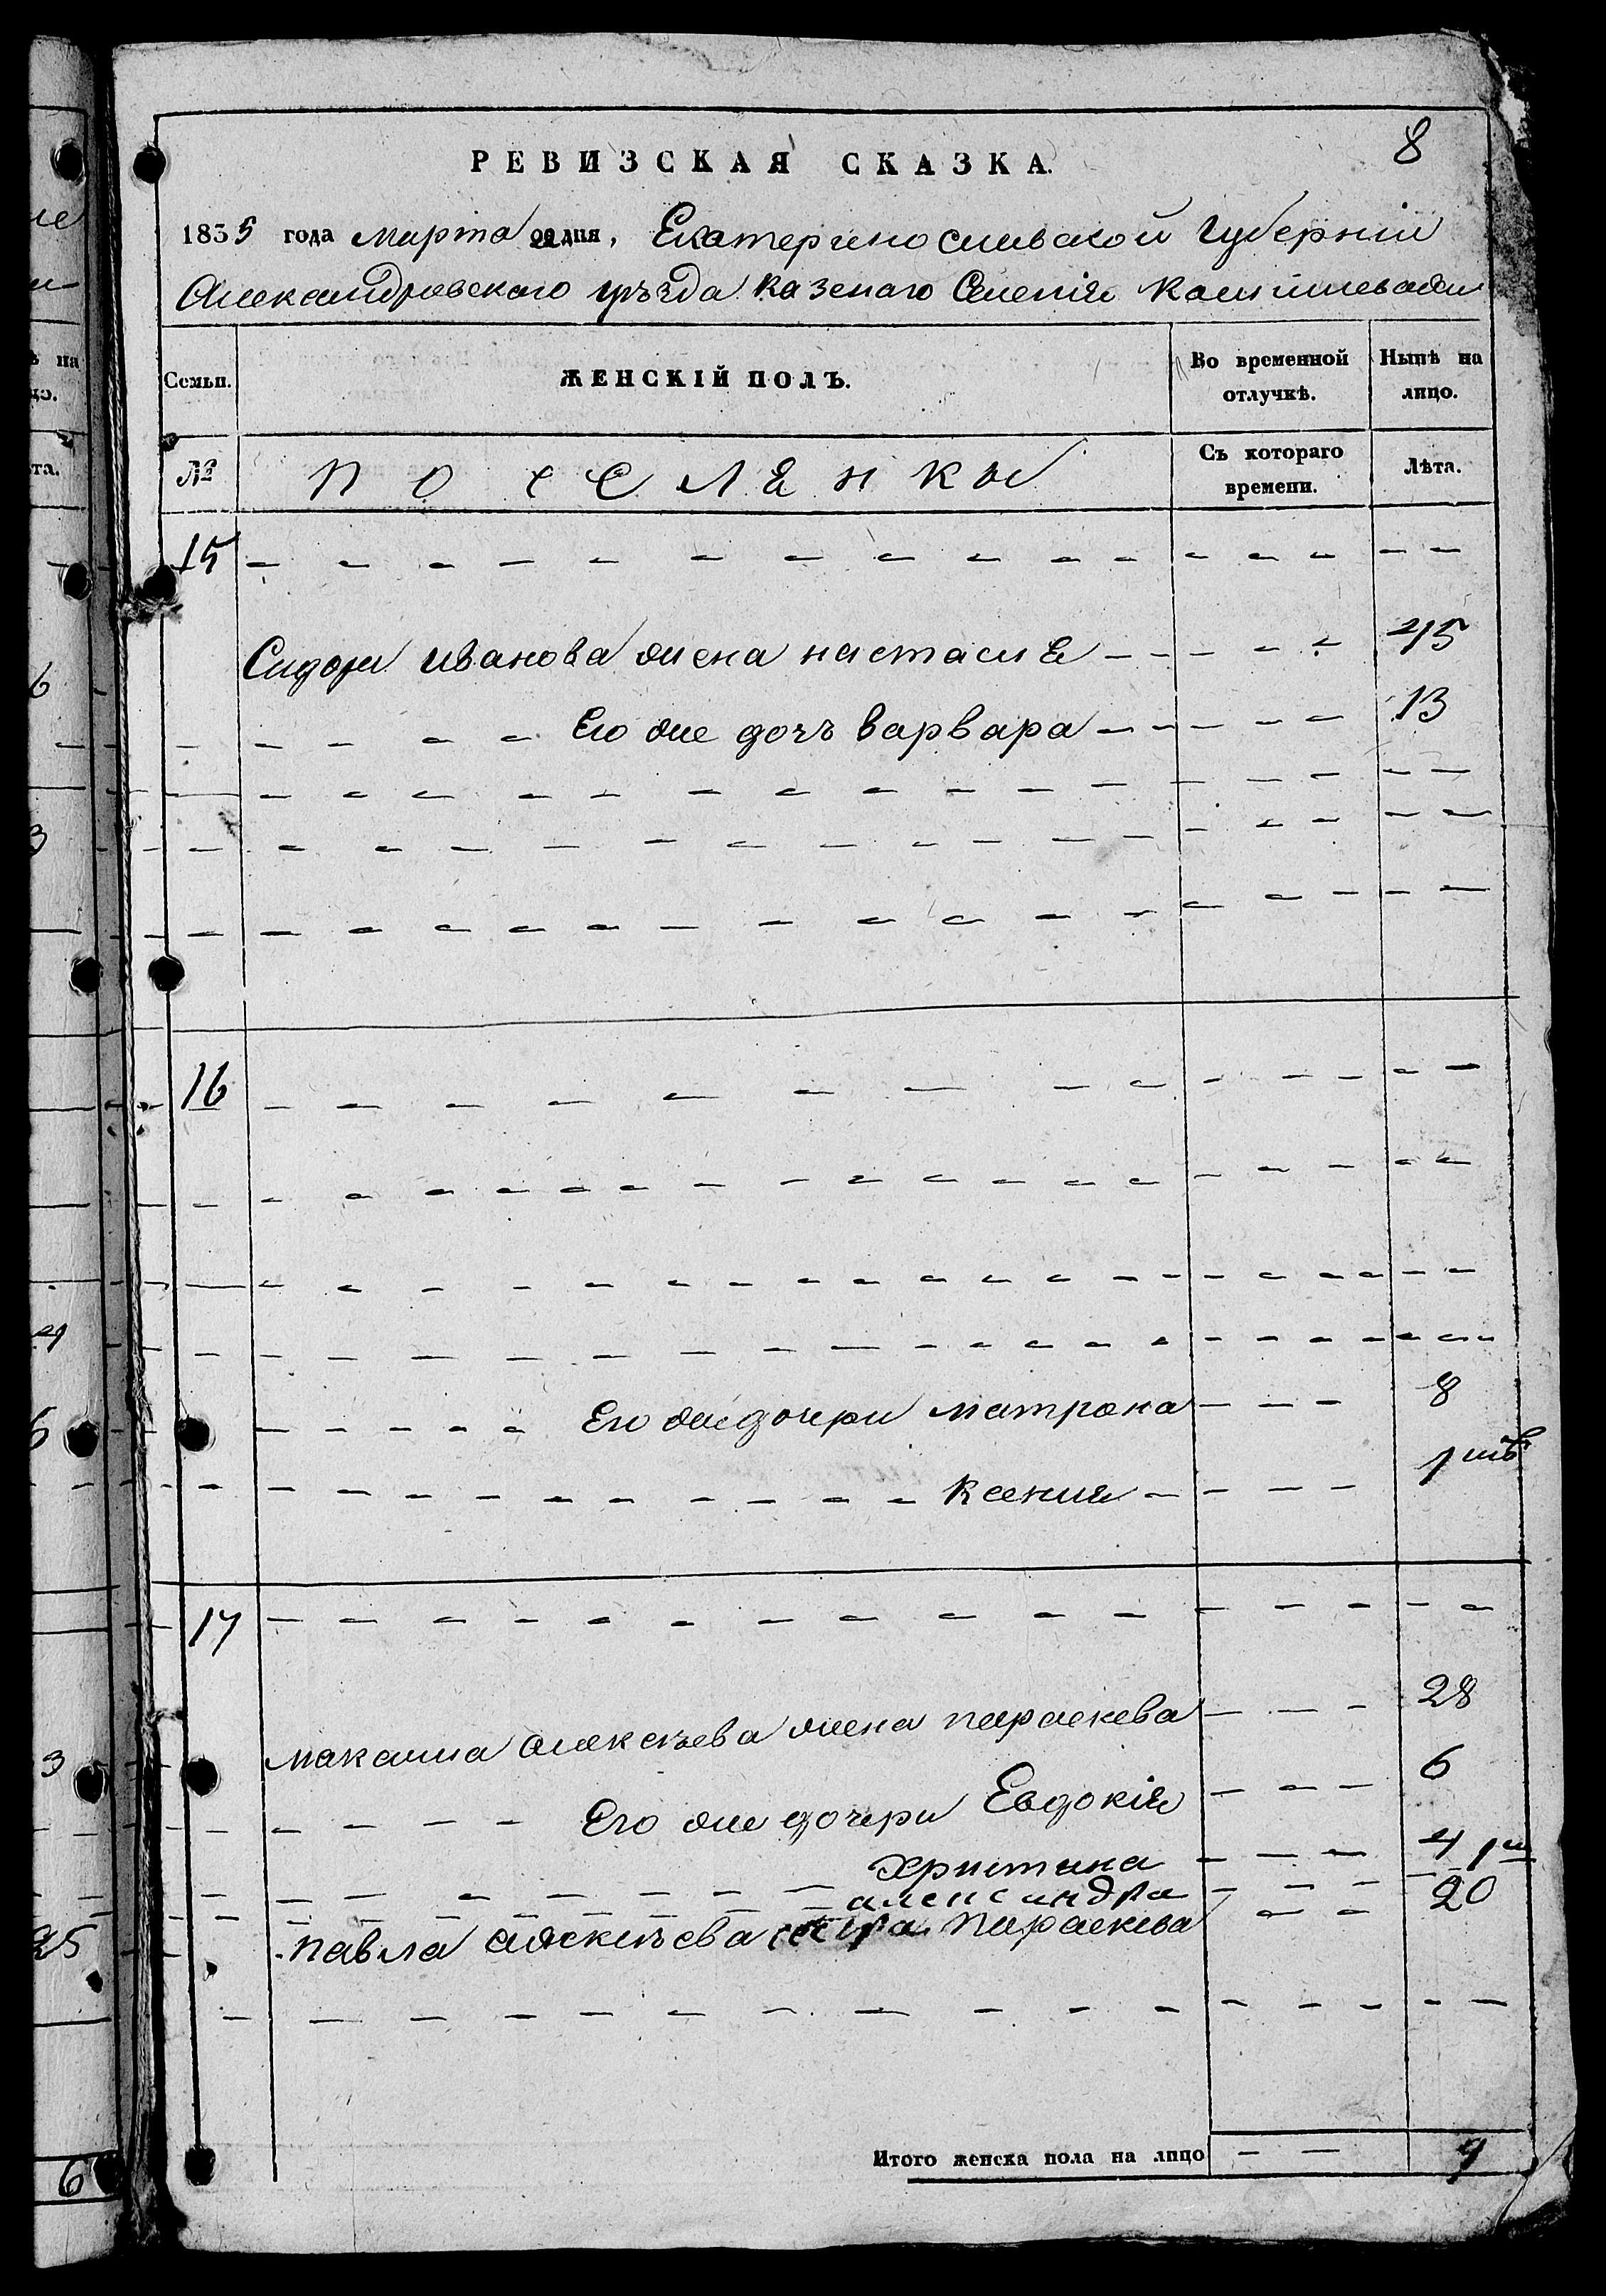 8
РЕВИЗСКАЯ СКАЗКА.
1835 года марта дня, Екатеринославской Губерніи
Александровского уѣзда казенаго Селенія
Семьи.
ЖЕНСКІЙ ПОЛЪ.
Во временной отлучкѣ.
Нынѣ на лицо.
№
поселянки
Съ котораго времени.
Лѣта.
15
Сидора иванова жена настасия 45
Его же дочъ варвара 13
16
Его же дочери матрона 8
ксения
17
максима алексѣева жена параскева 28
Его же дочери Евдокія 6
христина 4
александра
павла алексѣева сестра параскева 20
Итого женска пола на лицо 9